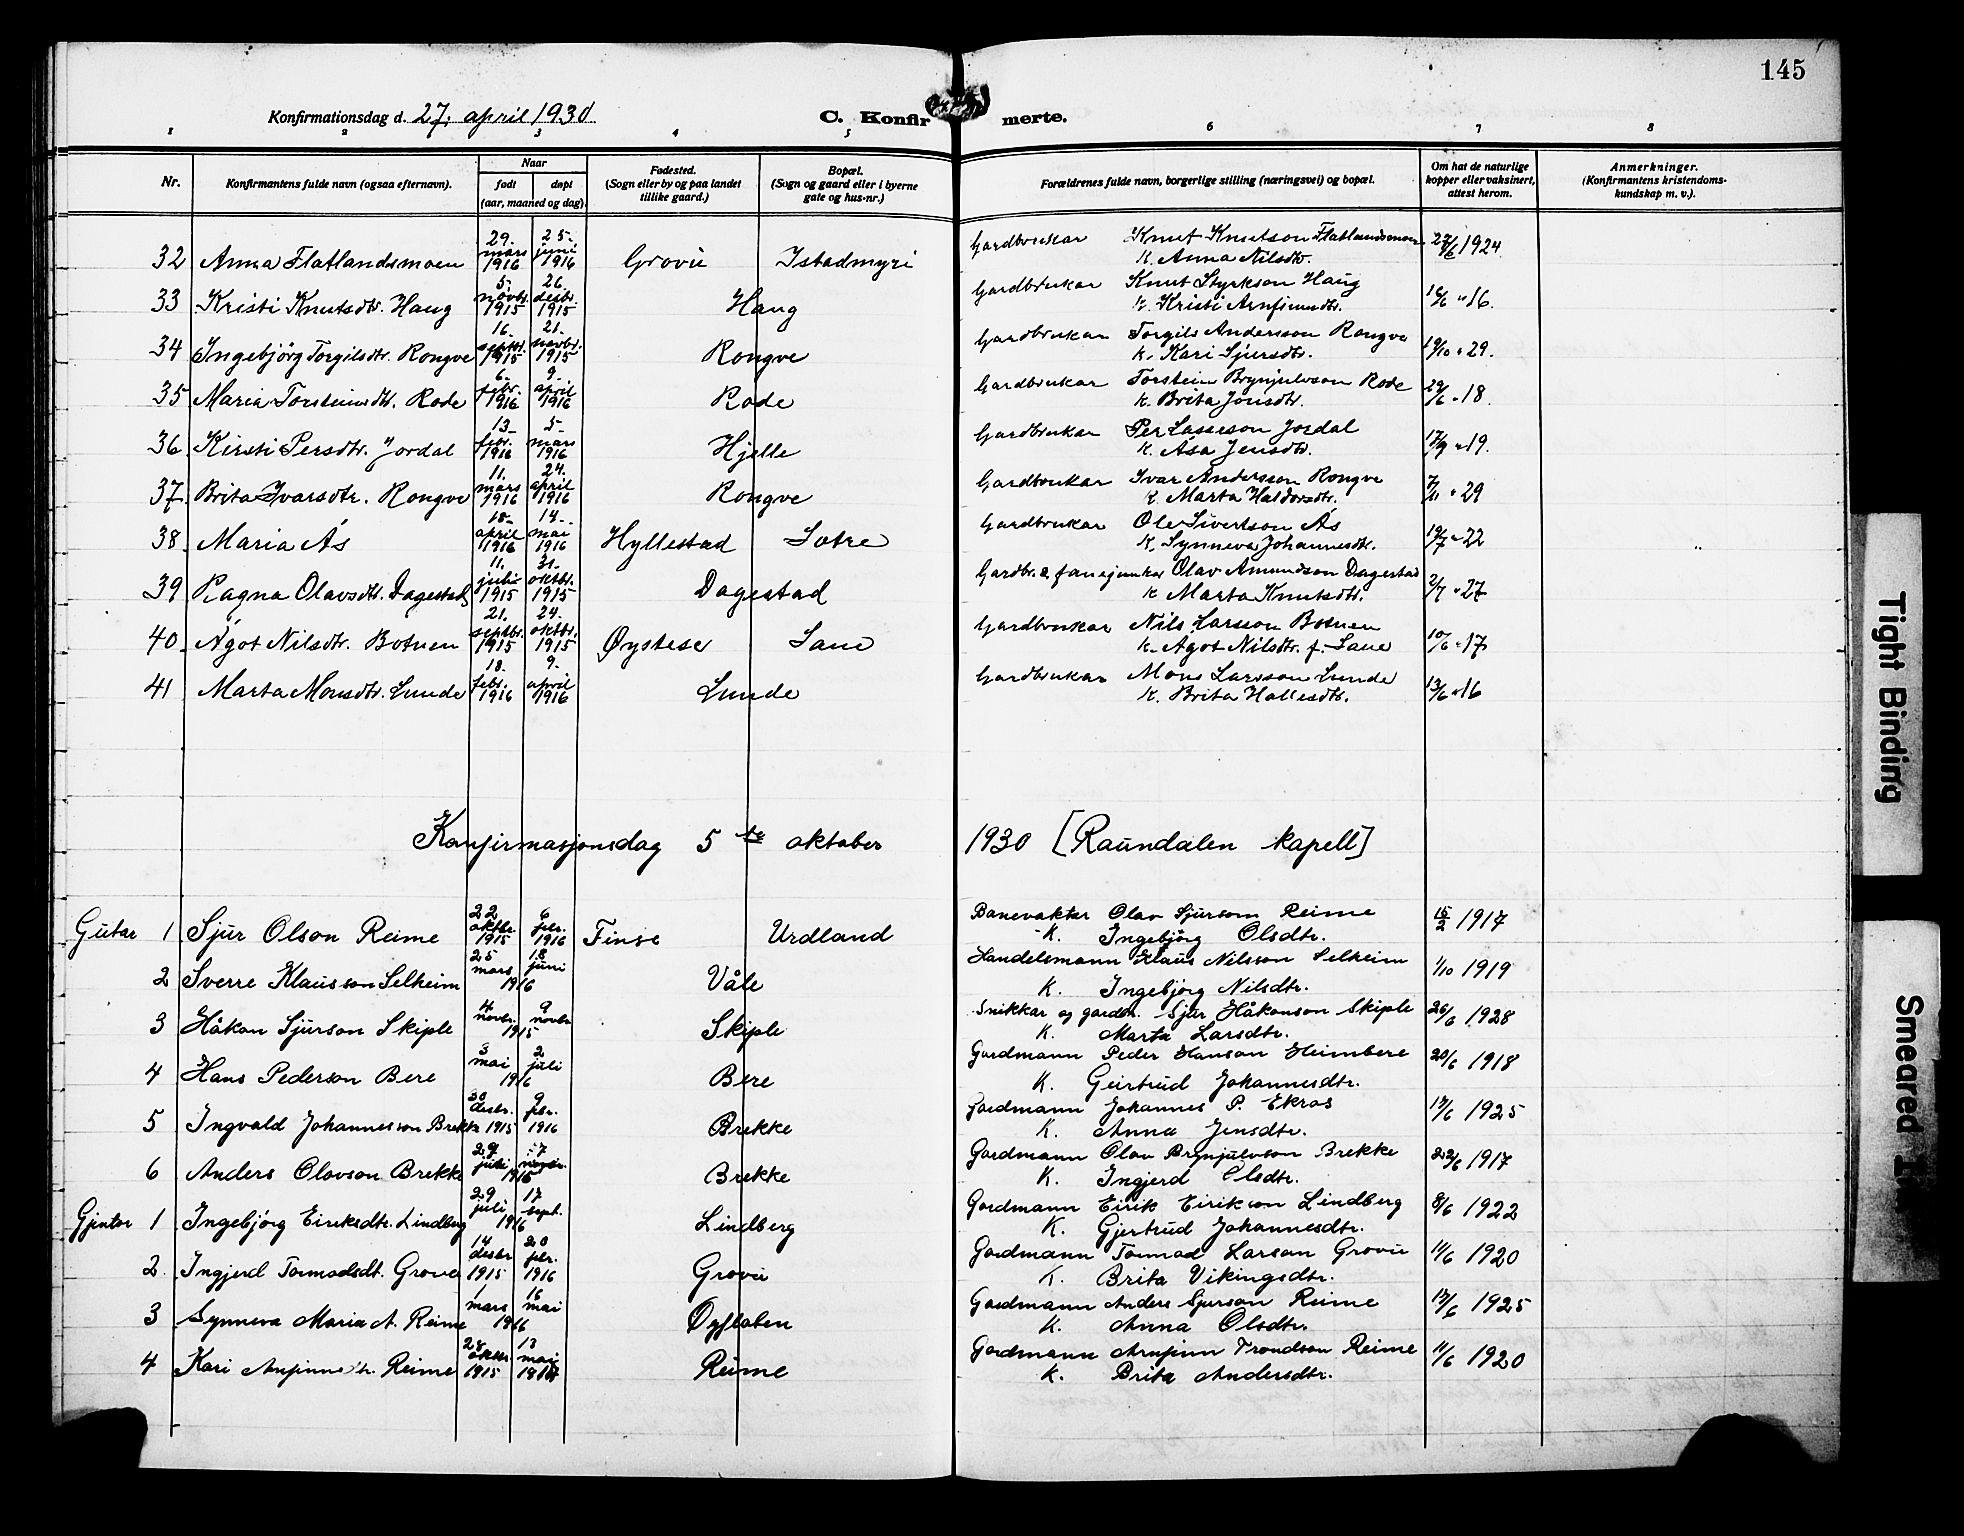 145
Konfirmationsdag d. 27. april 1930
C. Konfirmerte.
1 2 3 4 5 6 7 8
Nr.
Konfirmantens fulde navn (ogsaa efternavn).
Naar
født døpt
(aar, maaned og dag).
Fødested.
(Sogn eller by og paa landet
tillike gaard.)
Bopæl.
(Sogn og gaard eller i byerne
gate og hus-nr.)
Forældrenes fulde navn, borgerlige stilling (næringsvei) og bopæl.
Om hat de naturlige
kopper eller vaksinert,
attest herom.
Anmerkninger.
(Konfirmantens kristendoms-
kundskap m. v.).
32 Anna Flatlandsmoen 29. mars 1916 25. juni 1916 Grovu Istadmyri Gardbrukar Knut Knutson Flatlandsmoen 1924
K. Anna Nilsdtr.
33 Kristi Knutsdtr. Haug 5. novbr. 1915 26. desbr. 1915 Haug Gardbrukar Knut Styrkson Haug 16/6 " 16.
K. Kristi Arnfinnsdtr.
34 Ingebjörg Torgilsdtr. Rongve 16. septbr. 1915 21. novbr. 1915 Rongve Gardbrukar Torgils Andersson Rongve 19/10 " 29.
K. Kari Sjursdtr.
35 Maria Torsteinsdtr. Rode 6. febr. 1916 9. april 1916 Rode Gardbrukar Torstein Brynjulvson Rode 29/6 " 18.
K. Brita Jonsdtr.
36 Kirsti Persdtr. Jordal 13. febr. 1916 5. mars 1916 Hjelle Gardbrukar Per Lasseson Jordal 17/9 " 19.
K. Åsa Jensdtr.
37 Brita Ivarsdtr. Rongve 11. mars 1916 24. april 1916 Rongve Gardbrukar Ivar Andersson Rongve " 29
K. Marta Haldorsdtr.
38 Maria Ås 18. april 1916 14. mai 1916 Hyllestad Sætre Gardbrukar Ole Sivertson Ås 19/7 " 22
K. Synneva Johannesdtr.
39 Ragna Olavsdtr. Dagestad 11. juli 1915 31. oktbr. 1915 Dagestad Gardbr. & fanejunker Olav Amundson Dagestad 2/7 " 27
K. Marta Knutsdtr.
40 Ågot Nilsdtr. Botnen 21. septbr. 1915 24. oktbr. 1915 Øystese Saue Gardbrukar Nils Larsson Botnen 10/6 " 17
K. Agot Nilsdtr. f. Saue
41 Marta Monsdtr. Lunde 18. febr. 1916 9. april 1916 Lunde Gardbrukar Mons Larsson Lunde 13/6 " 16
K. Brita Hallesdtr.
Konfirmasjonsdag 5te oktober 1930 [Raundalen kapell]
Gutar 1 Sjur Olson Reime 22 oktbr. 1915 6 febr. 1916 Finse Urdland Banevakter Olav Sjurson Reime 15/2 1917
K. Ingebjörg Olsdtr.
2 Sverre Klausson Selheim 25 mars 18 juni 1916 Våle Handelsmann Klaus Nilsson Selheim 1/10 1919
K. Ingebjörg Nilsdtr.
3 Håkon Sjurson Skiple 4 novbr. 9 novbr 1915 Skiple Snikkar og gardm. Sjur Håkonson Skiple 26/6 1928
K. Marta Larsdtr.
4 Hans Pederson Bere 3 mai 2 juli 1916 Bere Gardmann Peder Hanson Heimbere 20/6 1918
K. Geirtrud Johannesdtr.
5 Ingvald Johannesson Brekke 30 desbr. 1915 9 febr. 1916 Brekke Gardmann Johannes P. Ekros 13/6 1925
K. Anna Jensdtr.
6 Anders Olavson Brekke 29 juli 7 novbr. 1915 Brekke Gardmann Olav Brynjulvson Brekke 22/6 1917
K. Ingjerd Olsdtr.
Gjentor 1 Ingebjörg Eiriksdtr. Lindberg 29 juli 17 sept. 1916 Lindberg Gardmann Eirik Eirikson Lindberg 8/6 1922
K. Gjertrud Johannesdtr.
2. Ingjerd Tormodsdt. Grove 14 desbr 1915 20 febr. 1916 Grovu Gardmann Tormod Larson Grovu 11/6 1920
K. Brita Vikingsdtr.
3 Synneva Maria A. Reime 1 mars 16 mai 1916 Øyfloten Gardmann Anders Sjurson Reime 13/6 1925
K. Anna Olsdtr.
4 Kari Arnfinnsdtr. Reime 28 oktbr. 1915 13 mai Reime Gardmann Arnfinn Trondson Reime 11/6 1920
K. Brita Andersdtr.
Tight Binding
Smeared